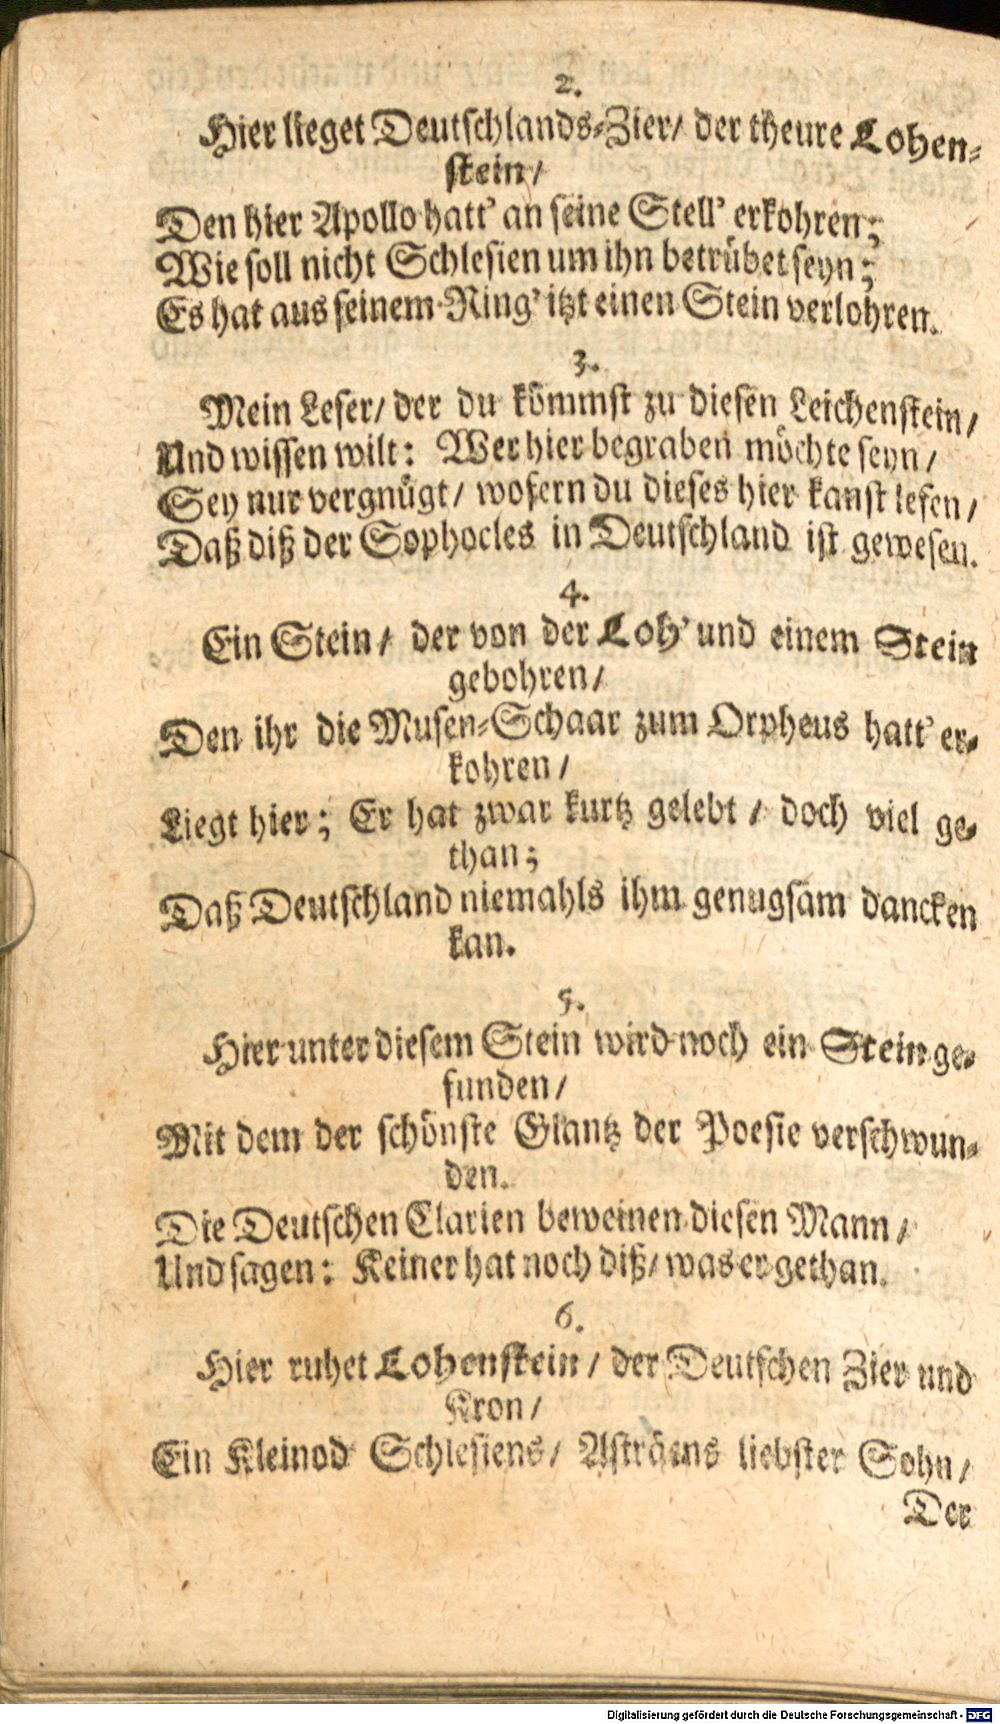 2.
Hier lieget Deutschlands-Zier/ der theure Lohen-
stein/
Den hier Apollo hatt' an seine Stell' erkohren;
Wie soll nicht Schlesien um ihn betrübet seyn;
Es hat aus seinem Ring' itzt einen Stein verlohren.
3.
Mein Leser/ der du kömmst zu diesen Leichenstein/
Und wissen wilt: Wer hier begraben möchte seyn/
Sey nur vergnügt/ wofern du dieses hier kanst lesen/
Daß diß der Sophocles in Deutschland ist gewesen.
4.
Ein Stein/ der von der Loh' und einem Stein
gebohren/
Den ihr die Musen-Schaar zum Orpheus hatt' er-
kohren/
Liegt hier; Er hat zwar kurtz gelebt / doch viel ge-
than;
Daß Deutschland niemahls ihm genugsam dancken
kan.
5.
Hier unter diesem Stein wird noch ein Stein ge-
funden/
Mit dem der schönste Glantz der Poesie verschwun-
den.
Die Deutschen Clarien beweinen diesen Mann/
Und sagen: Keiner hat noch diß/ was er gethan.
6.
Hier ruhet Lohenstein/ der Deutschen Zier und
Kron/
Ein Kleinod Schlesiens/ Asträens liebster Sohn/
Der
Digitalisierung gefördert durch die Deutsche Forschungsgemeinschaft - DFG